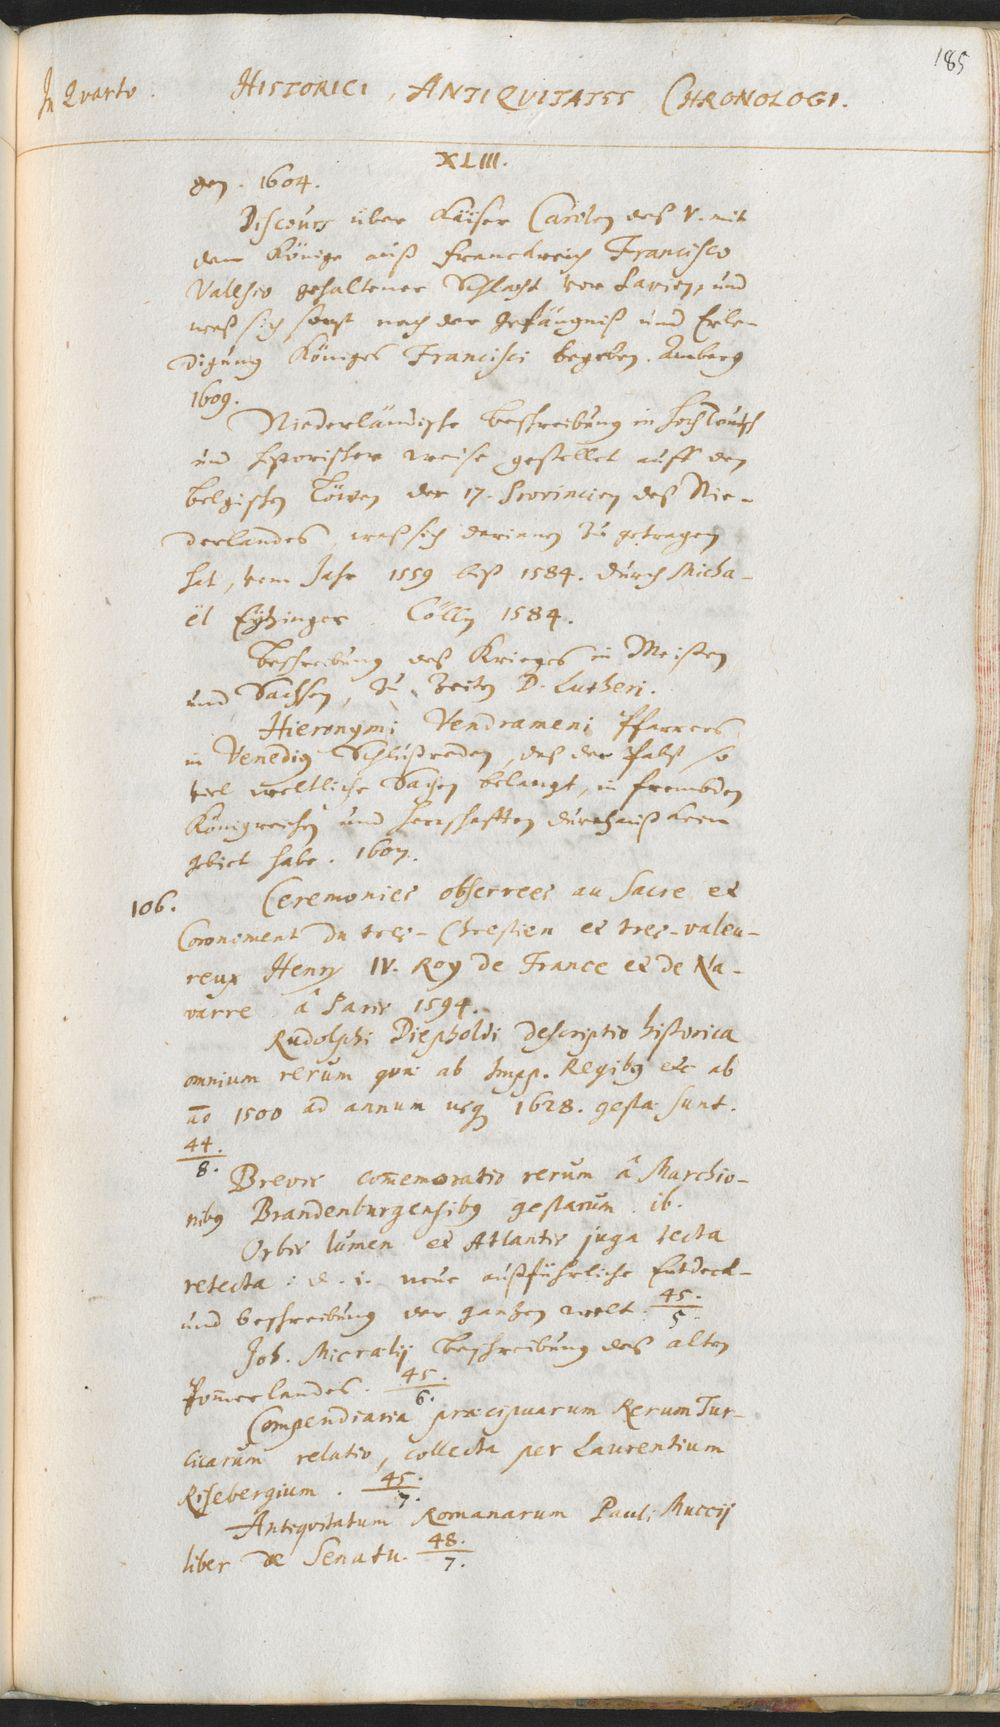 185
In Quarto. HISTORICI, ANTIQVITATES CHRONOLOGI.
XLIII.
gen. 1604.
Discours über Käiser Carolen deß V. mit
dem Könige auß Franckreich Francisco
Valesio gehaltener Schlacht vor Pavien, und
waß sich sonst nach der Gefängniß und Erle-
digung Königes Francisci begeben. Amberg
1609.
Niederländische beschreibung in hochteutsch
und historischer weise gestellet auff den
belgischen Löwen der 17. Provincien deß Nie-
derlandes, waß sich darinnen zu getragen
hat, vom Jahr 1559 biß 1584. durch Micha-
ël Eytzinger. Cölln 1584.
Beschreibung deß Krieges in Meissen
und Sachsen, zu Zeiten D. Lutheri.
Hieronymi Vendrameni Pfarrers
in Venedig Schlußreden, daß der Pabst, so
viel weltliche Sachen belangt, in frembden
Königreichen und herrschafften durchauß kein
gebiet habe. 1607.
106. Ceremonies observees au Sacre et
Coronement du tres-Chrestien et tres-valeu-
reux Henry IV. Roy de France et de Na-
varre. â Paris 1594.
Rudolphi Diepholdi descriptio historica
omnium rerum quæ ab Impp. Regibq etc ab
ao 1500 ad annum usq 1628. gesta sunt.
44.
8.
Brevis com̄emoratio rerum â Marchio-
nibq Brandenburgensibq gestarum. ib.
Orbis lumen et Atlantis juga tecta
retecta: d. i. neue außführliche Entdeck-
und beschreibung der gantzen welt. 45.
5.
Joh. Micrælij beschreibung des alten
Pom̄erlandes. 45.
6.
Compendiaria præcipuarum Rerum Tur-
cicarum relatio, collecta per Laurentium
Risebergium. 45.
7.
Antiqvitatum Romanarum Pauli Muccij
liber de Senatu. 48.
7.